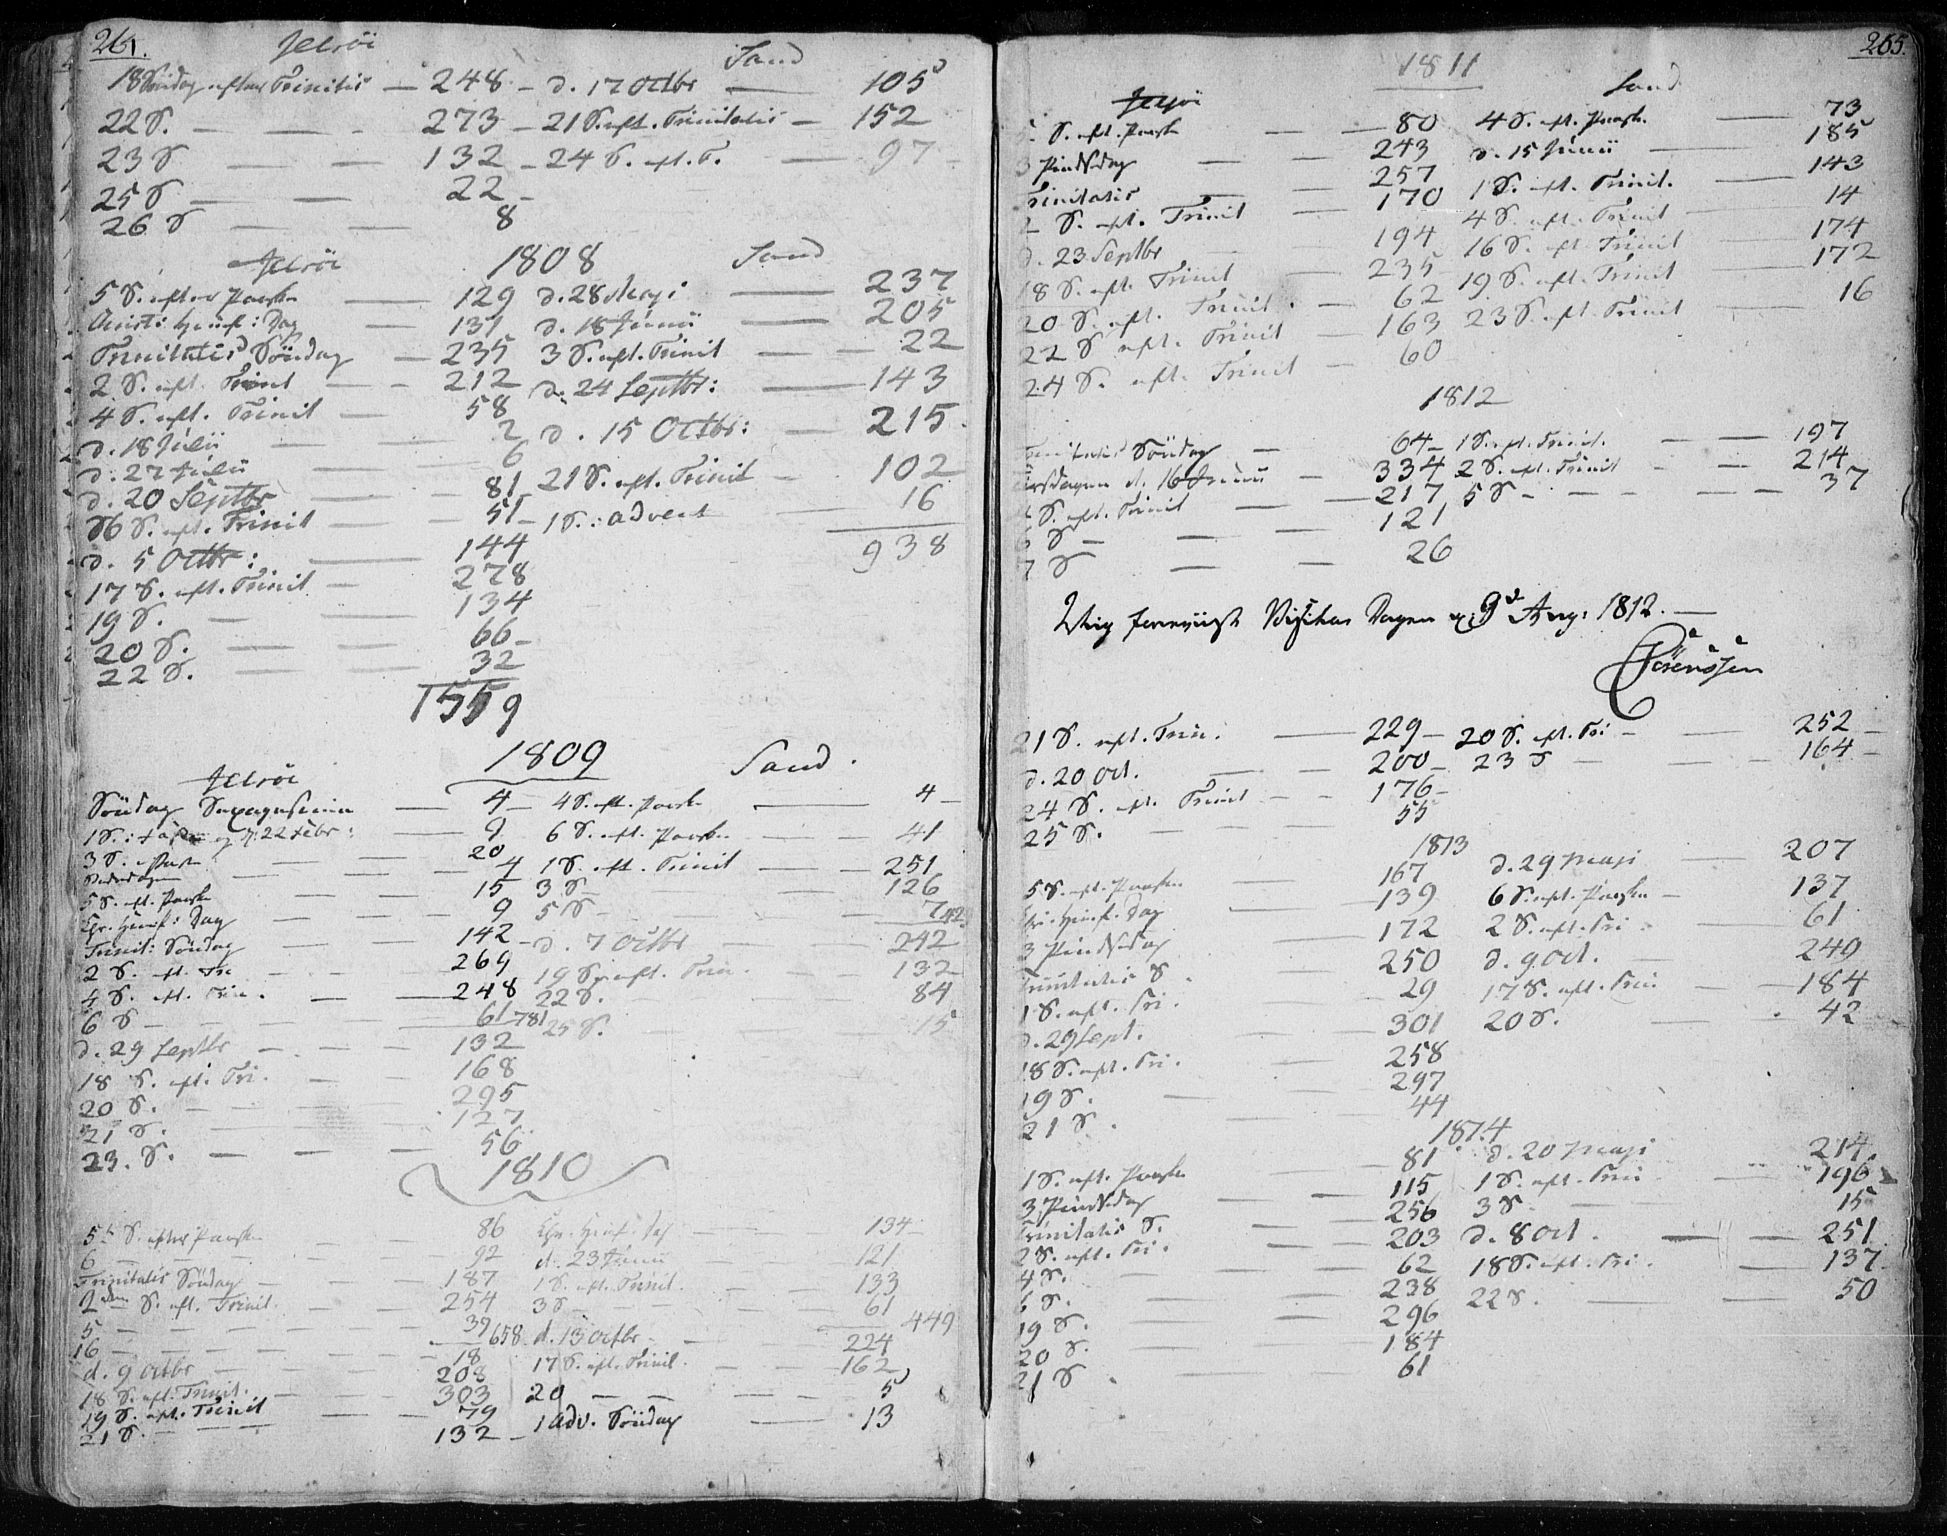 264.
Jelsøe Sand
18 Söndag efter Trinitis — 248 – d. 17 Octbr — 105
22 S. — 273 – 21 S. eft. Trinitatis — 152
23 S — 132 – 24 S. eft. T. — 97
25 S — 22 –
26 S — 8
Jelsøe 1808 Sand
5 S. efter Paaske 129 d. 28 Maji — 237
Christi Himf: Dag — 131 d. 18 Junii — 205
Trinitatis Söndag — 235 3 S. eft. Trinit — 22
2 S. eft. Trinit — 212 d. 24 Septbr: — 143
4 S. eft. Trinit — 58 d. 15 Octbr: — 215
d. 18 Julii 2
d. 27 Julii — 6 21 S. eft. Trinit — 102
d. 20 Septbr — 81 1 S: Advent 16
16 S. eft. Trinit — 51 – 938
d. 5 Octbr: — 144
17 S. eft. Trinit — 278
19 S. — 134
20 S. — 66 –
22 S. — 32
1559
1809
Jelsøe Sand.
Söndag Sexagesima — 4 – 4 S. eft. Paaske — 4 –
1 S. i Faste og d: 22 Febr: — 9 6 S. eft. Paaske — 41
3 S. — 20 1 S. eft. Trinit — 251
4 3 S — 126
5 S. eft. Paaske 15 5 S — 7 429
Chr. Himf: Dag 9 d. 7 Octbr 242
Trinit: Söndag — 142 – 19 S. eft. Trin. 132
2 S. eft. Tri — 269 22 S. — 84
4 S. eft. Trin. — 248 25 S. 15
6 S — 61 781
d. 29 Septbr — 132
18 S. eft. Tri. — 168
20 S. — 295
21 S. — 127
23. S. — 56
1810
5te S. efter Paaske 86 Chr. Himf: 134
6 — 92 d. 23 Junii 121
Trinitatis Söndag — 187 1 S. eft. Trinit. 133
2den S. eft. Trinit. — 254 3 S — 61
5 — 39 658 449
16 — 18 d. 13 Octbr — 224
d. 9 Octbr — 208 17 S. eft. Trinit. — 162
18 S. eft. Trinit. — 303 20 — 5
19 S. eft. Trinit — 79 1 Adv. Söndag — 13
21 S. — 132 –
265.
1811
Jelsøe Sand
5 S. eft. Paaske — 80 4 S. eft. Paaske — 73
3 Pindsdag — 243 d. 15 Junii — 185
Trinitatis — 257 1 S. eft. Trinit. — 143
2 S. eft. Trinit — 170 4 S. eft. Trinit — 14
d. 23 Septbr 194 16 S. eft. Trinit — 174
18 S. eft. Trinit — 235 19 S. eft. Trinit — 172
20 S. eft. Trinit. — 62 23 S. eft. Trinit — 16
22 S eft. Trinit — 163
24 S. eft. Trinit — 60
1812
Trinitatis Söndag — 64 – 1 S. eft. Trinit. — 197
d. 16 Junii — 334 2 S. eft. Trinit — 214
S. eft. Trinit — 217 5 S — 37
6 S — 121
7 S — 26
Visitas Dagen d: 9d Aug: 1812. —
Sörenssen
21 S. eft. Trin. — 229 – 20 S. eft. Tri — 252 –
d. 20 Oct. — 200 – 23 S — 164 –
24 S. eft. Trinit — 176 –
25 S. 55
1813
5 S. eft. Paaske 167 d. 29 Maji — 207
Chr. Himf. Dag — 139 6 S. eft. Paaske — 137
3 Pindsdag 172 2 S. eft. Tri 61
Trinitatis S. 250 d. 9 Oct. — 249
1 S. eft. Tri. 29 17 S. eft. Trin. — 184
d. 29 Sept. 301 20 S. 42
18 S. eft. Tri. 258
19 S. — 297
21 S. — 44
1814
1 S. eft. Paaske — 81 d. 20 Maji 214
3 Pindsdag — 115 1 S. eft. Trin — 196
Trinitatis S. — 256 3 S — 15
2 S. eft. Tri. — 203 d. 8 Oct. — 251
4 S. — 62 18 S. eft. Tri. — 137
6 S. — 238 22 S. — 50
19 S. — 296
20 S. — 184
21 S. — 61